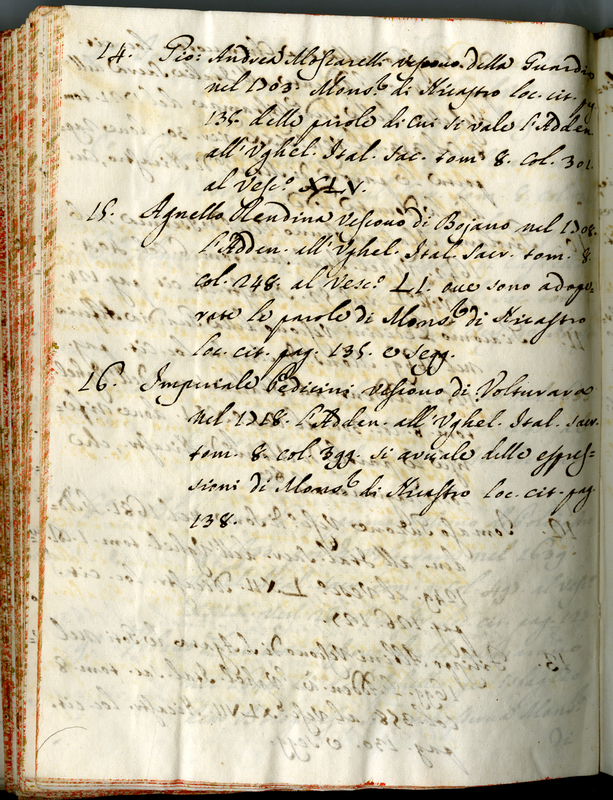 14. Gio: Andrea Moscarelli vescovo della Guardia
nel 1703. Mons.r di Nicastro loc. cit. pag.
135. delle parole di cui si vale l'Adden.
all'Vghel. Ital. Sac. tom. 8. col. 301.
al Vesc.o XLV.
15. Agnello Rendina vescovo di Bojano nel 1708.
l'Adden. all'Vghel. Ital. Sacr. tom. 8.
col. 248. al Vesc.o LI. oue sono adope-
rate le parole di Mons.r di Nicastro
loc. cit. pag. 135. e segg.
16. Imperiale Pedicini vescouo di Volturara
nel 1718. l'Adden. all'Vghel. Ital. sacr.
tom. 8. col. 399. si auuale delle espres-
sioni di Mons.r di Nicastro loc. cit. pag.
138.